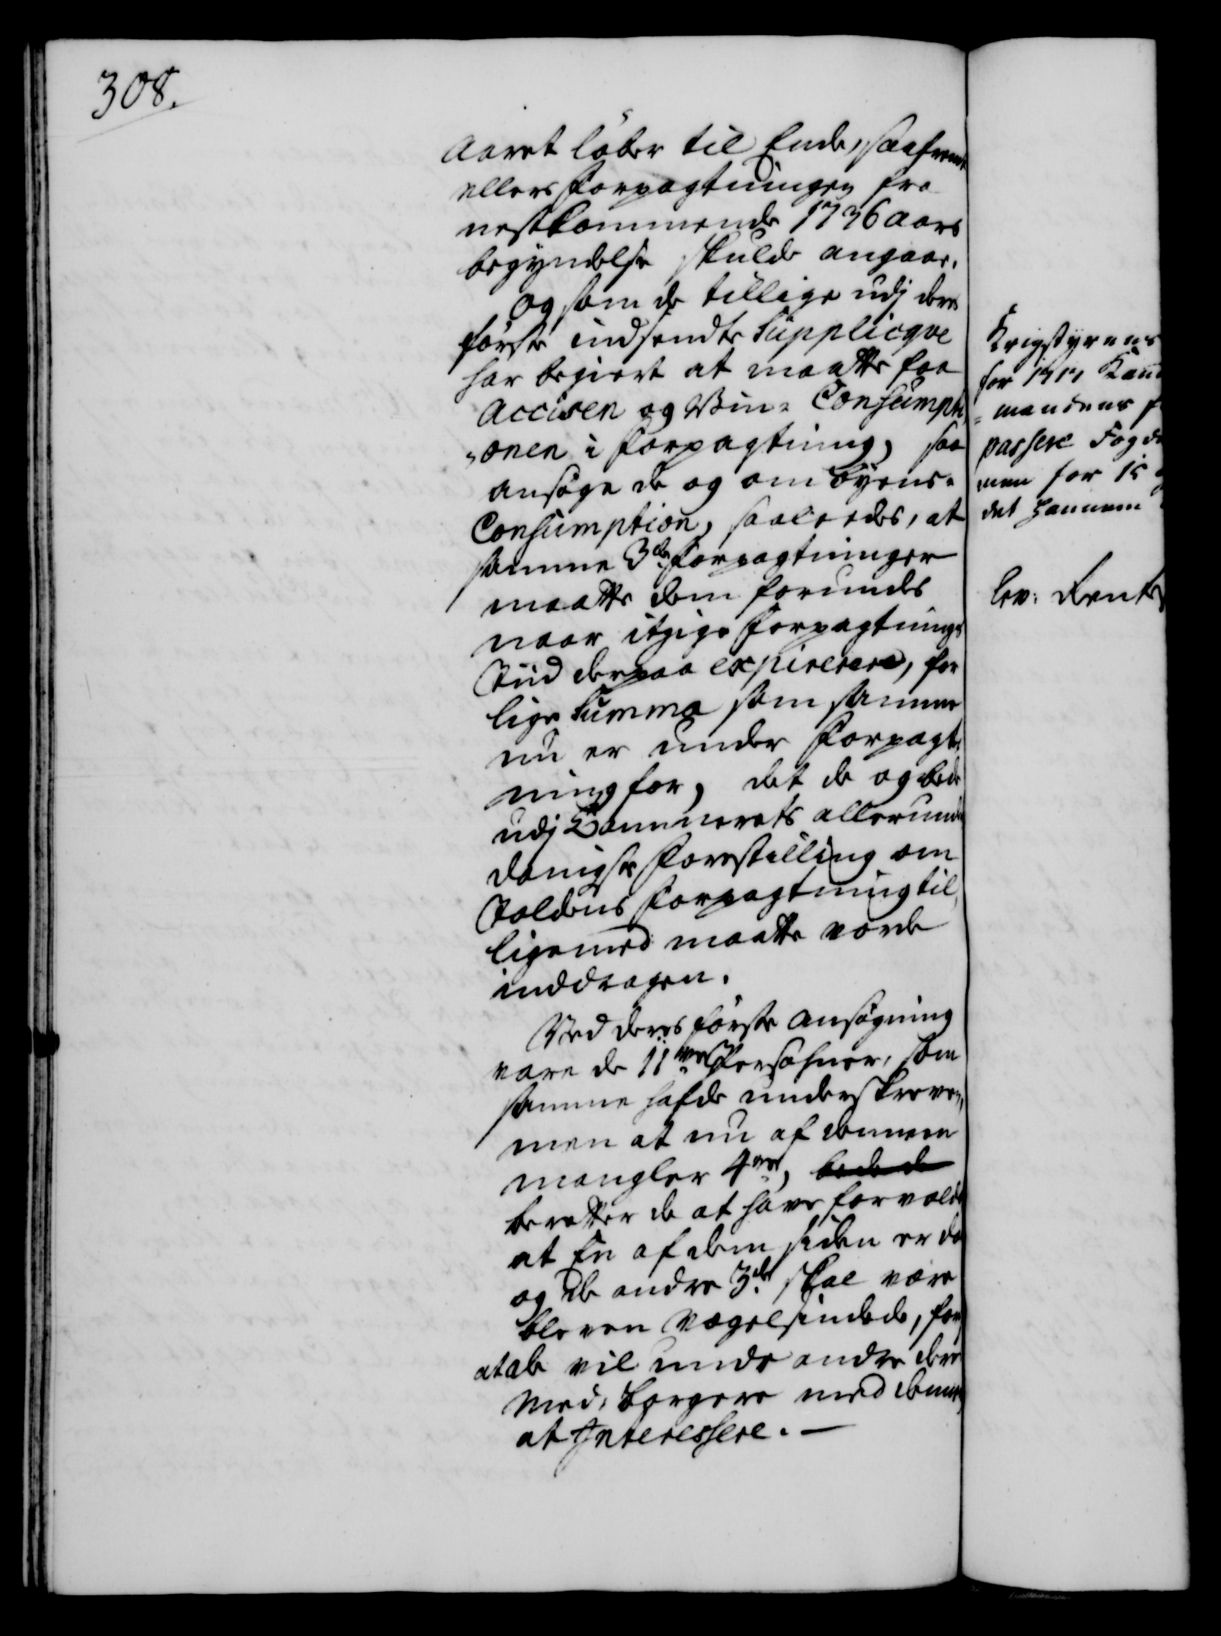 308.
Aaret løber til Ende, saafremt
ellers Forpagtningen fra
nestkommende 1736 Aars
begyndelse skulde angaae.
Og som de tillige udj deres
første indsendte Supplicqve
har begiert at maatte faa
Accisen og Viin- Consumpti-
onen i Forpagtning, saa
ansøge de og om Byens-
Consumption, saaleedes, at
samme 3de Forpagtninger
maatte dem forundes
naar itzige Forpagtnings
Tiid derpaa expirerere, for
lige Summa som samme
nu er under Forpagt-
ning for, det de og bede
udj Cammerets allerunder
danigste Forestilling om
Toldens Forpagtning til
ligemed maatte vorde
inddragen.
Ved deres første Ansøgning
vare de 11ve Persohner, som
samme hafde underskreven,
men at nu af dennem
mangler 4re, bede de
beretter de at have forvoldt
at En af dem siden er død
og de andre 3de skal være
bleven vægelsindede, for
at de vil unde andre deres
Med-borgere med dennem
at Interessere. —
Krigstyrens
for 1717
mandens
passere Fogde
men for 15
det hannem
lev: Rente